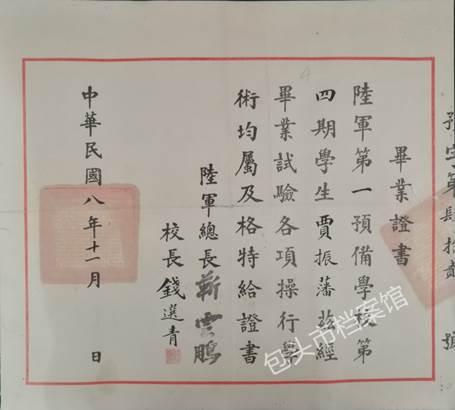 預字第肆拾貳號
畢業證書
陸軍第一預備學校第
四期學生賈振藩茲經
畢業試驗各項操行學
術均屬及格特給證書
陸軍總長靳雲鵬
校長錢選青
中華民國八年十一月 日
包头市档案馆